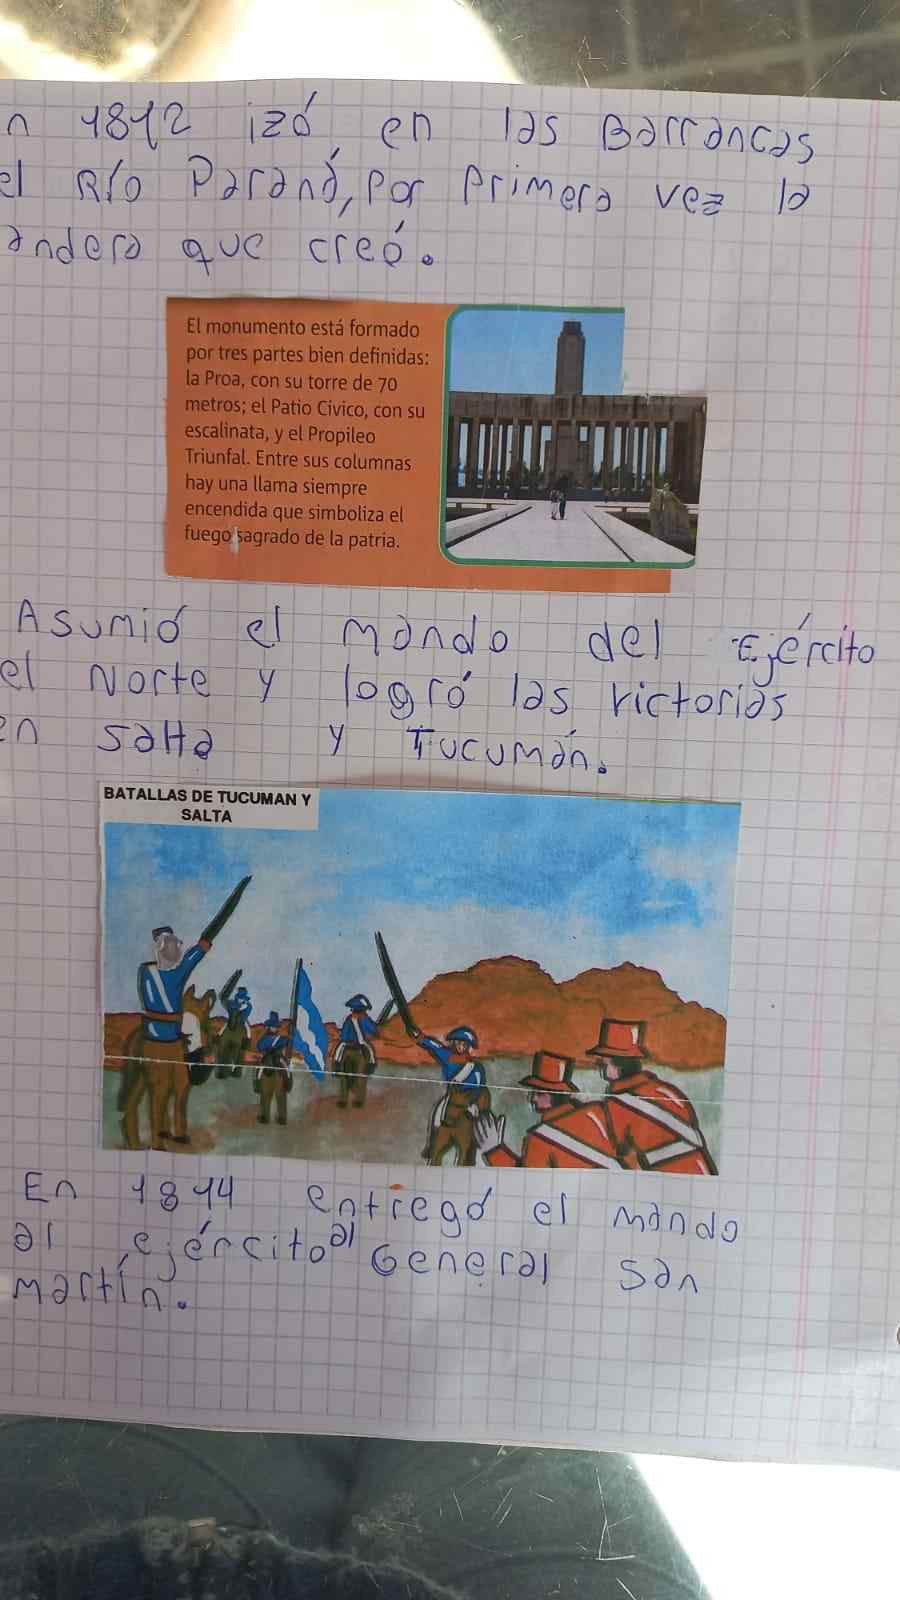 n 1812 izó en las Barrancas
el Río Paraná, por primera vez la
andera que creó.
El monumento está formado
por tres partes bien definidas:
la Proa, con su torre de 70
metros; el Patio Cívico, con su
escalinata, y el Propileo
Triunfal. Entre sus columnas
hay una llama siempre
encendida que simboliza el
fuego sagrado de la patria.
Asumió el mando del Ejército
el Norte y logró las victorias
en Salta y Tucumán.
BATALLAS DE TUCUMAN Y
SALTA
En 1814 entregó el mando
al ejército al General San
Martín.